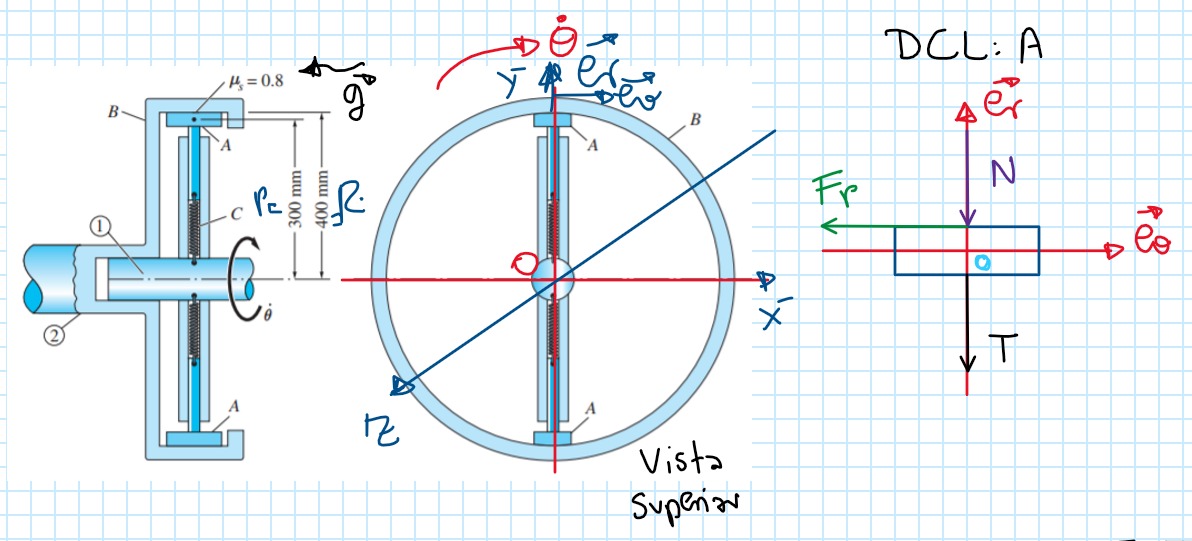 μₛ = 0.8
g⃗
B
A
C
rc
300 mm
400 mm
R
1
2
θ̇
A
θ̇
y
e⃗r
e⃗θ
B
A
O
x
z
A
Vista
Superior
DCL: A
e⃗r
N
Fr
e⃗θ
O
T